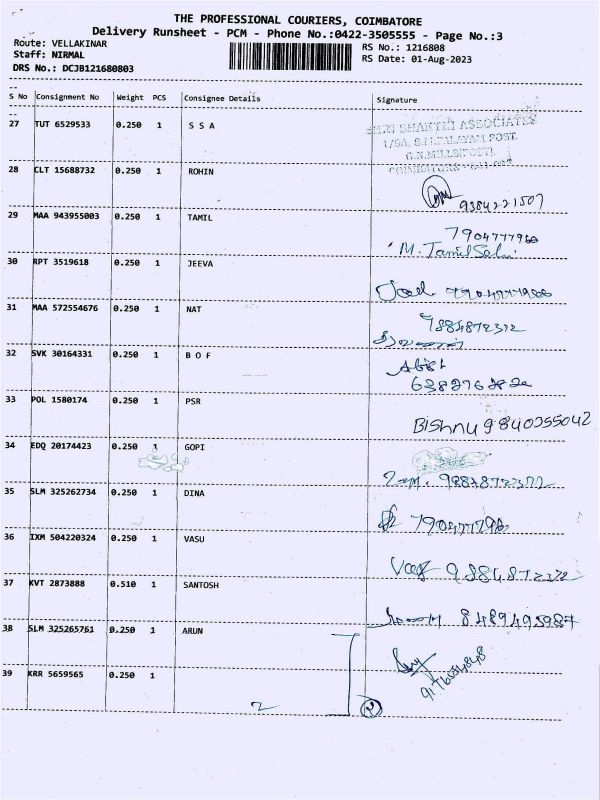 THE PROFESSIONAL COURIERS, COIMBATORE
Delivery Runsheet - PCM - Phone No.:0422-3505555 - Page No.:3
Route: VELLAKINAR RS No.: 1216808
Staff: NIRMAL RS Date: 01-Aug-2023
DRS No.: DCJB121680803
S No Consignment No Weight PCS Consignee Details Signature
27 TUT 6529533 0.250 1 S S A
SHRI SHAKTHI ASSOCIATES
28 CLT 15688732 0.250 1 ROHIN
9384221507
29 MAA 943955003 0.250 1 TAMIL
M. Tamil Selvi
30 RPT 3519618 0.250 1 JEEVA
31 MAA 572554676 0.250 1 NAT
32 SVK 30164331 0.250 1 B O F
33 POL 1580174 0.250 1 PSR
Bishnu 9840255042
34 EDQ 20174423 0.250 1 GOPI
35 SLM 325262734 0.250 1 DINA
36 IXM 504220324 0.250 1 VASU
9884872372
37 KVT 2873888 0.510 1 SANTOSH
8489495987
38 SLM 325265761 0.250 1 ARUN
39 KRR 5659565 0.250 1
2